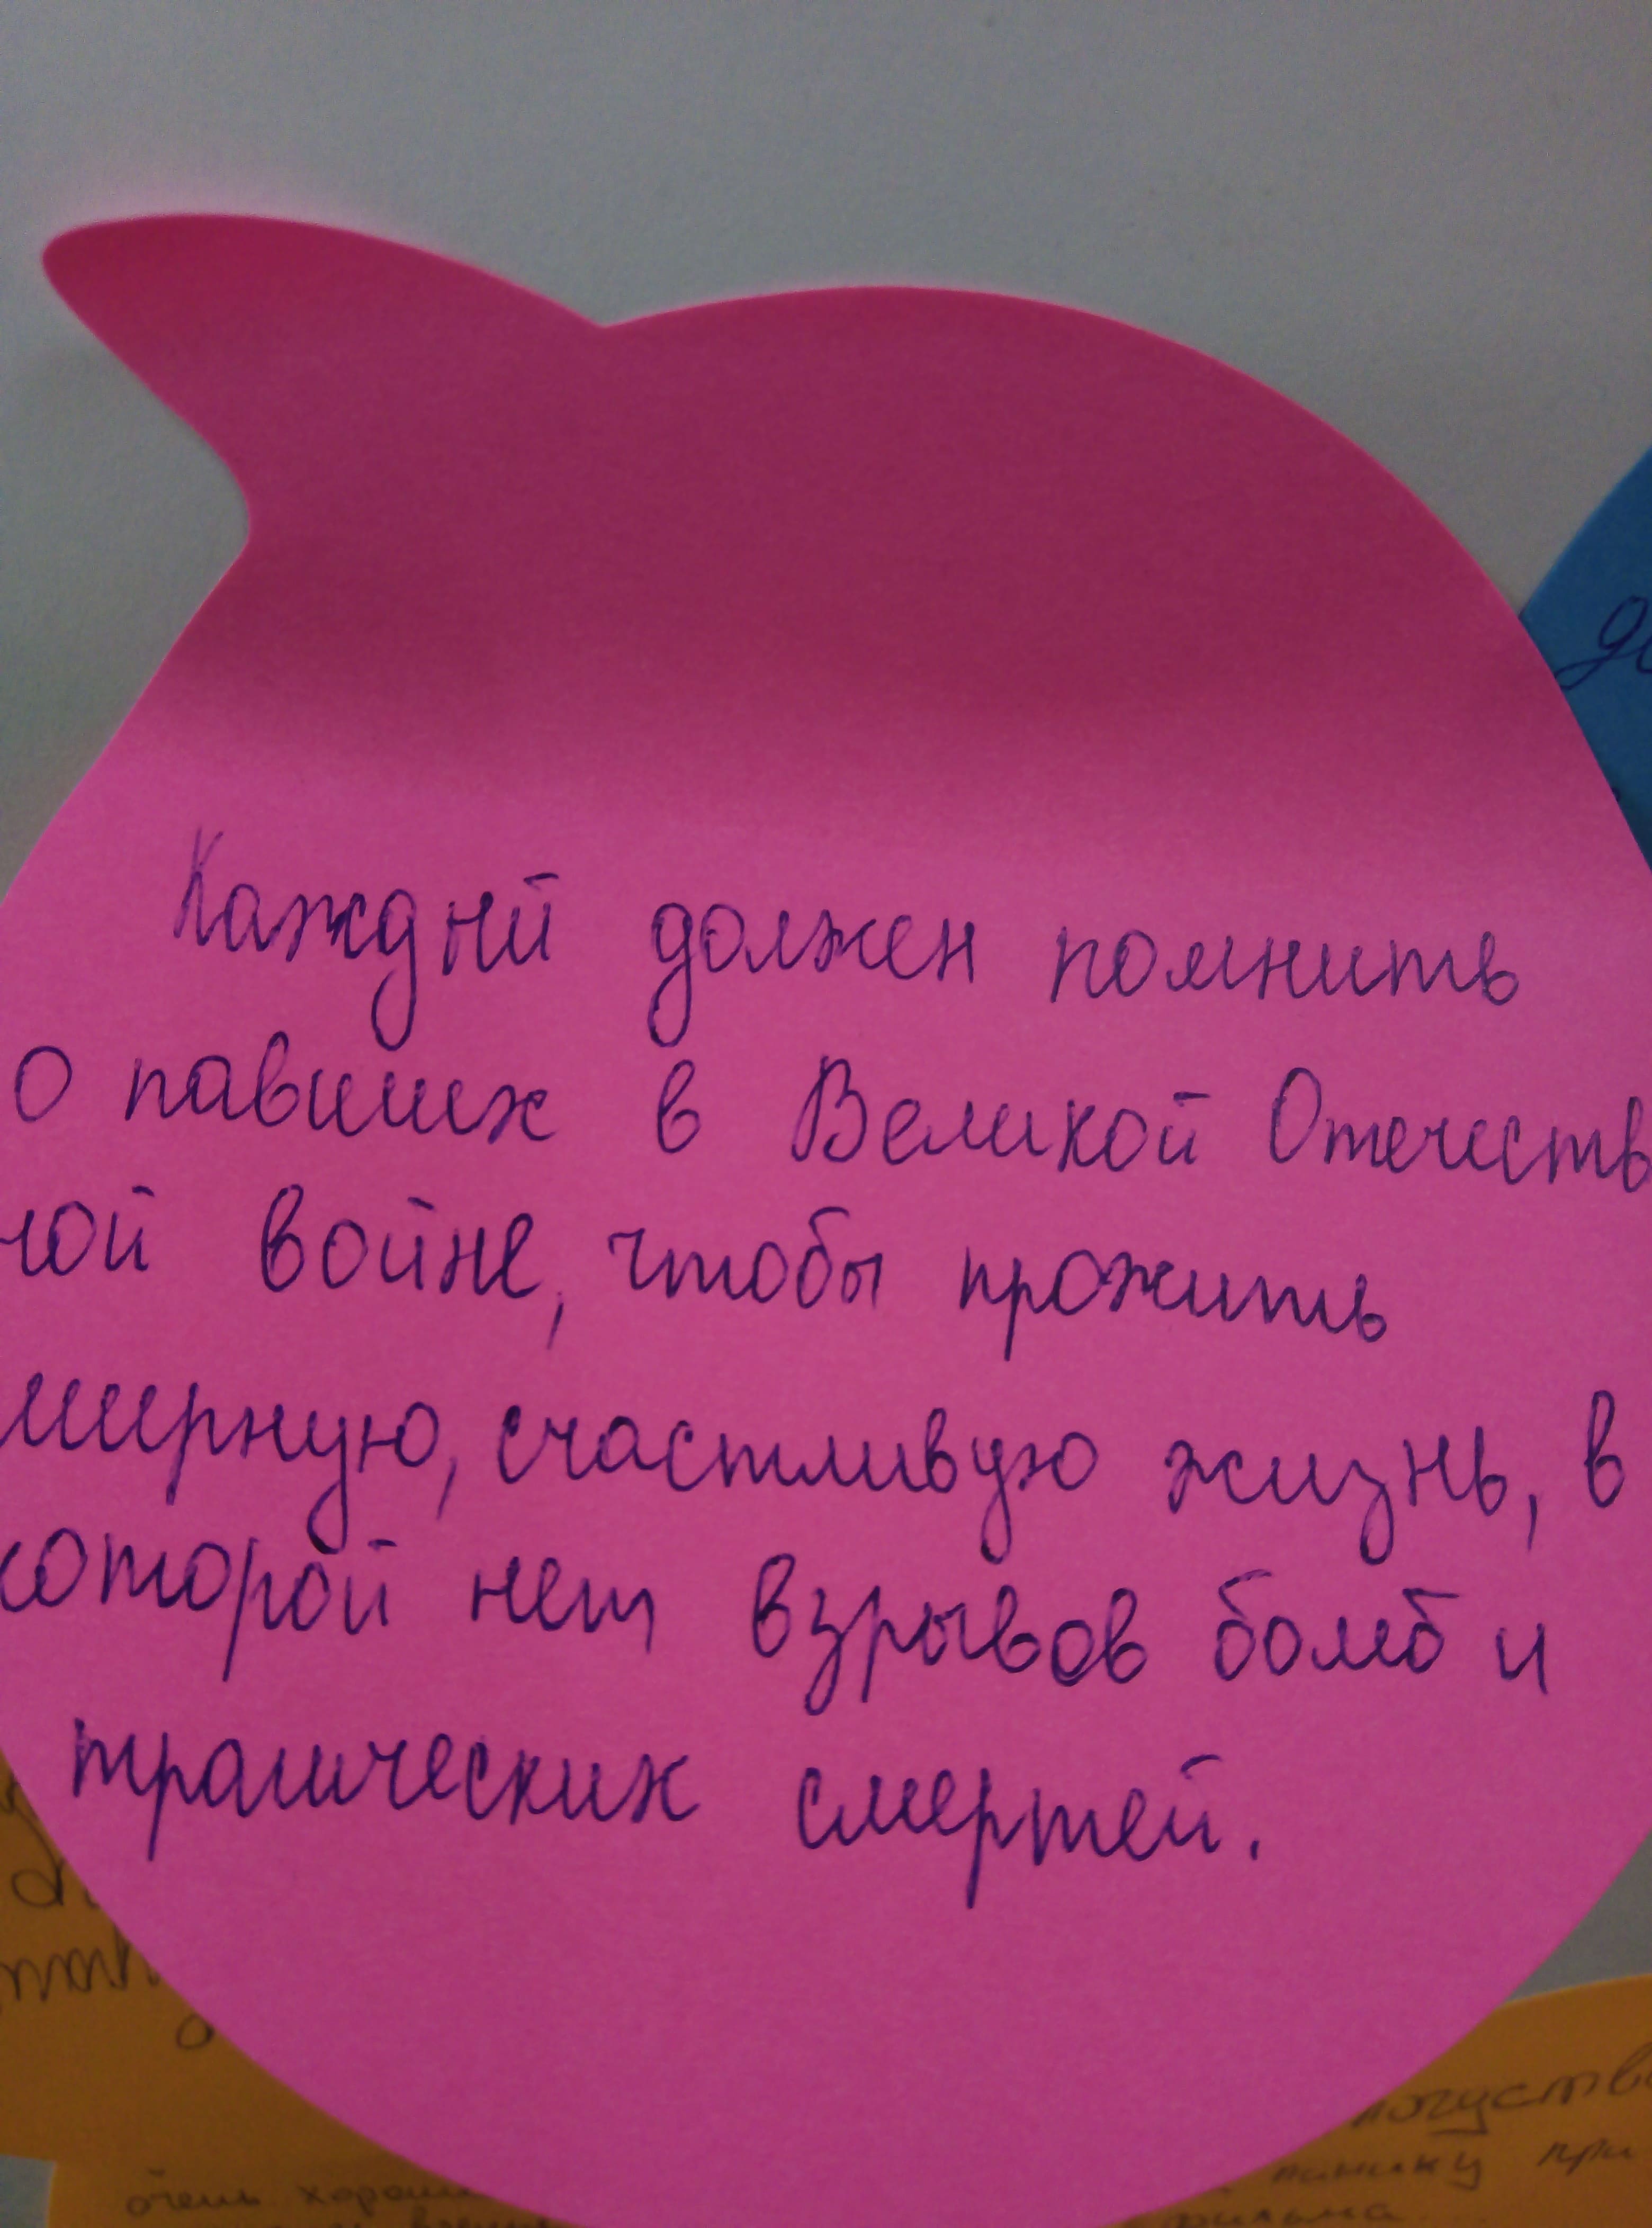 Каждый должен помнить
о павших в Великой Отечеств
ной войне, чтобы прожить
мирную, счастливую жизнь, в
которой нет взрывов бомб и
трагических смертей.
очень